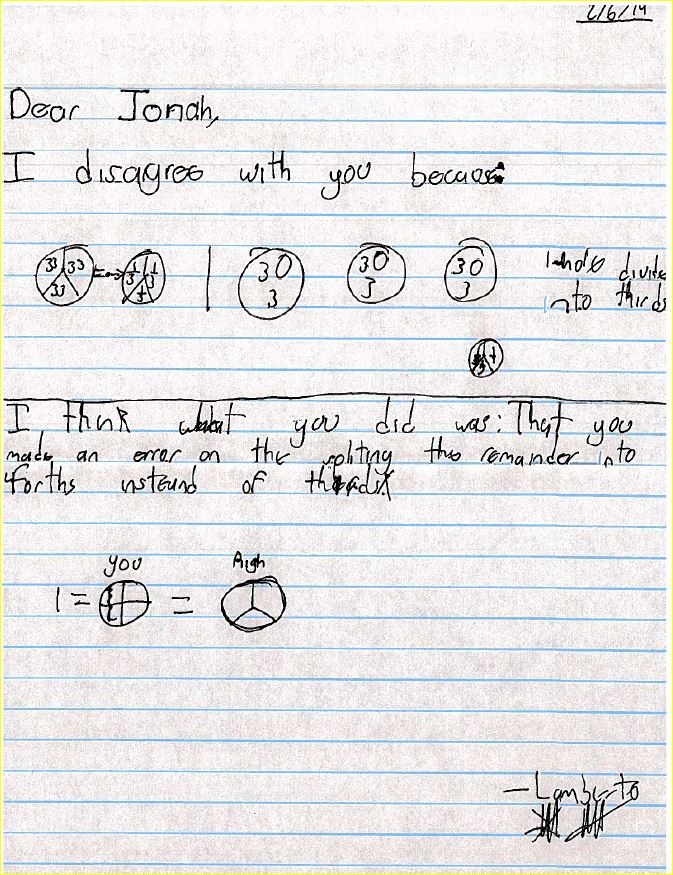 2/6/14
Dear Jonah,
I disagree with you because:
33 33 33 = 1/3 1/3 1/3 30 3 30 3 30 3 divide
into thirds
I think what you did was: That you
made an error on the spliting the remainder into
forths insteand of
you Righ
1 = =
— Lamberto